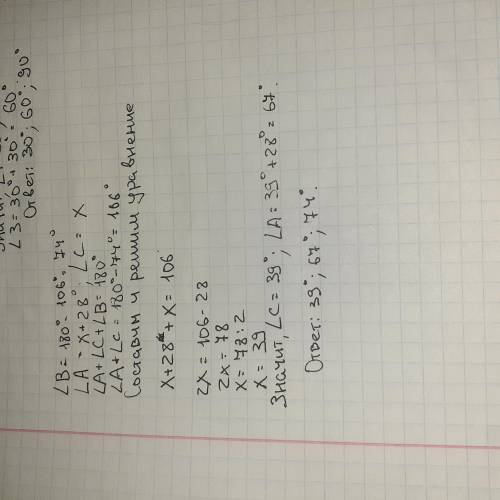 Значит,
∠3 = 30° + 30° = 60°
Ответ: 30°; 60°; 90°
∠B = 180° - 106° = 74°
∠A = x + 28°; ∠C = x
∠A + ∠C + ∠B = 180°
∠A + ∠C = 180° - 74° = 106°
Составим и решим уравнение
x + 28 + x = 106
2x = 106 - 28
2x = 78
x = 78 : 2
x = 39
Значит, ∠C = 39°; ∠A = 39° + 28° = 67°.
Ответ: 39°; 67°; 74°.